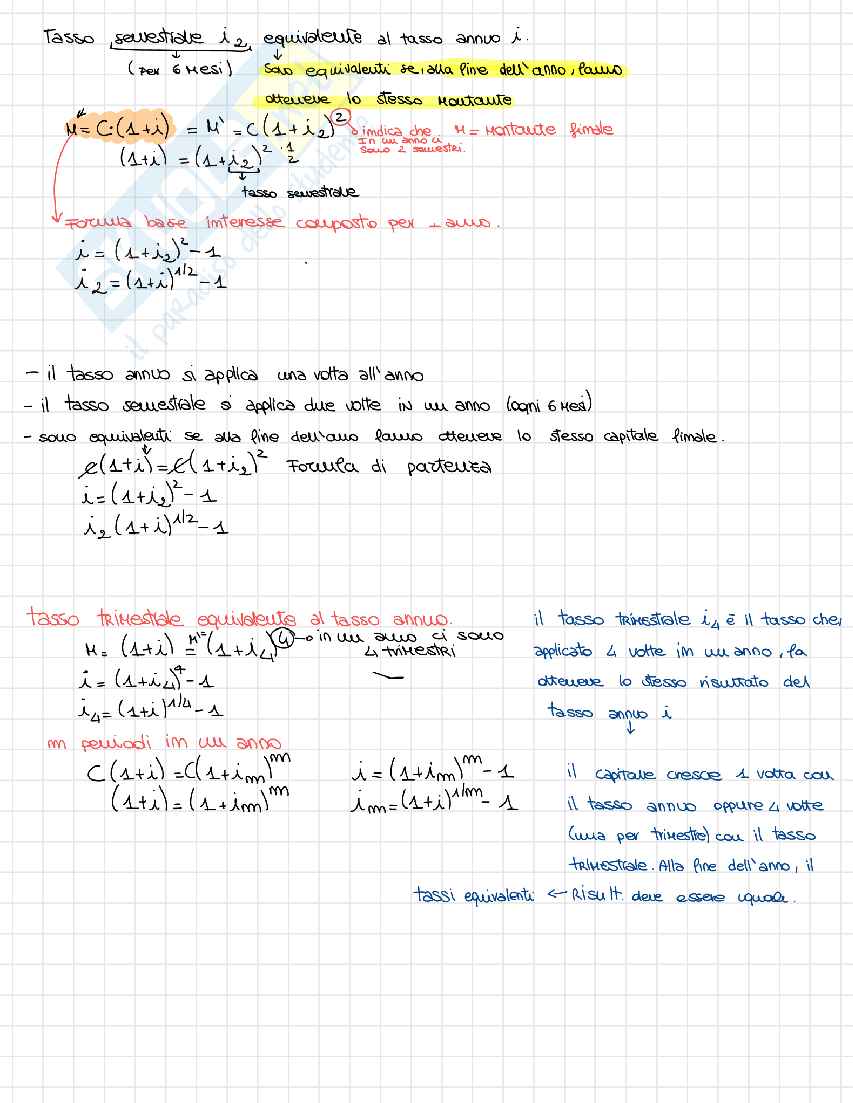 Tasso semestrale i₂, equivalente al tasso annuo i.
(per 6 mesi) sono equivalenti se, alla fine dell'anno, fanno
ottenere lo stesso montante
M = C·(1+i) = M' = C(1+i₂)² indica che M = Montante finale
In un anno ci
sono 2 semestri.
(1+i) = (1+i₂)^2·1/2
tasso semestrale
Formula base interesse composto per 1 anno.
i = (1+i₂)² - 1
i₂ = (1+i)^1/2 - 1
SKUOLA.net
il paradiso dello studente
- il tasso annuo si applica una volta all'anno
- il tasso semestrale si applica due volte in un anno (ogni 6 mesi)
- sono equivalenti se alla fine dell'anno fanno ottenere lo stesso capitale finale.
C(1+i) = C(1+i₂)² Formula di partenza
i = (1+i₂)² - 1
i₂ (1+i)^1/2 - 1
tasso trimestrale equivalente al tasso annuo.
M = (1+i) = M'= (1+i₄)⁴ → in un anno ci sono
4 trimestri
i = (1+i₄)⁴ - 1
i₄ = (1+i)^1/4 - 1
m periodi in un anno
C(1+i) = C(1+iₘ)^m i = (1+iₘ)^m - 1
(1+i) = (1+iₘ)^m iₘ = (1+i)^1/m - 1
il tasso trimestrale i₄ è il tasso che,
applicato 4 volte in un anno, fa
ottenere lo stesso risultato del
tasso annuo i
↓
il capitale cresce 1 volta con
il tasso annuo oppure 4 volte
(una per trimestre) con il tasso
trimestrale. Alla fine dell'anno, il
tassi equivalenti ← Risult. deve essere uguale.